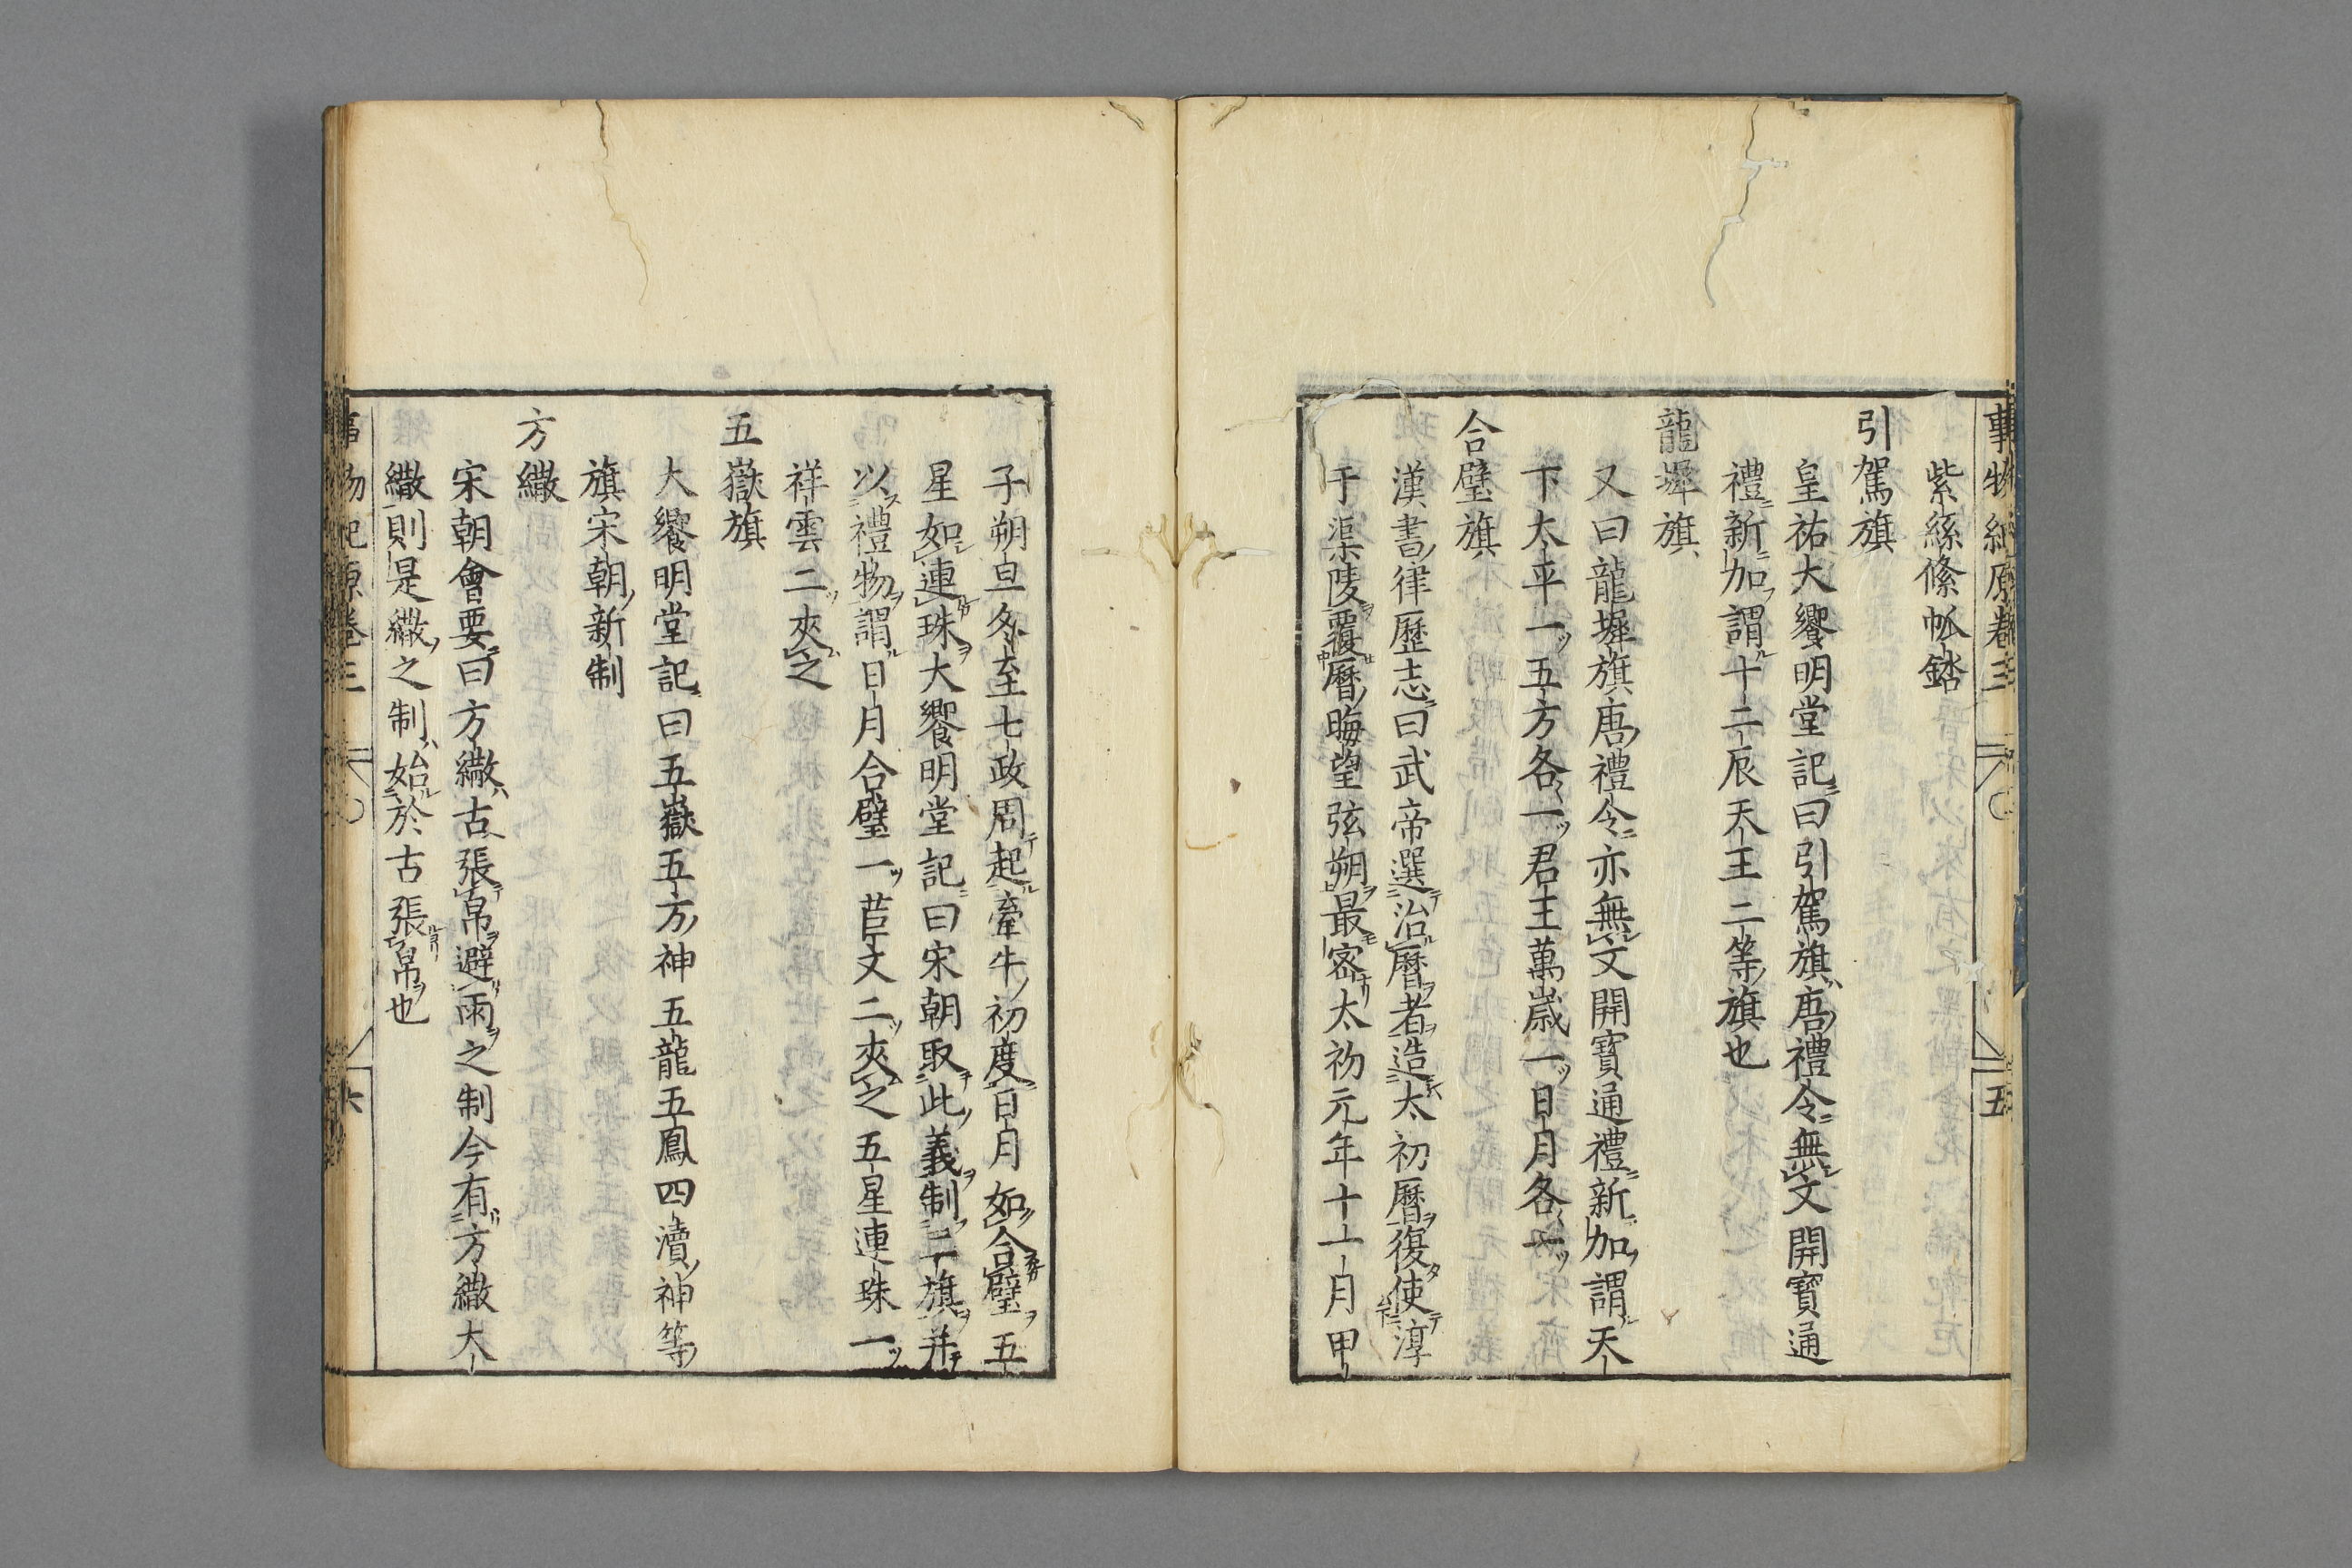 事物紀原卷三
五
紫絲絛帉錔
引駕旗
皇祐大饗明堂記曰引駕旗唐禮令無文開寶通
禮新加謂十二辰天王二等旗也
龍墀旗
又曰龍墀旗唐禮令亦無文開寶通禮新加謂天
下太平一五方各一君王萬歲一日月各一
合璧旗
漢書律歷志曰武帝選治曆者造太初曆復使淳
于渠陵覆曆晦望弦朔最密太初元年十一月甲
子朔旦冬至七政周起牽牛初度日月如合璧五
星如連珠大饗明堂記曰宋朝取此義制二旗并
以禮物謂日月合璧一苣文二夾之五星連珠一
祥雲二夾之
五嶽旗
大饗明堂記曰五嶽五方神五龍五鳳四瀆神等
旗宋朝新制
方繖
宋朝會要曰方繖古張帛避雨之制今有方繖大
繖則是繖之制始於古張帛也
事物紀原卷三
六